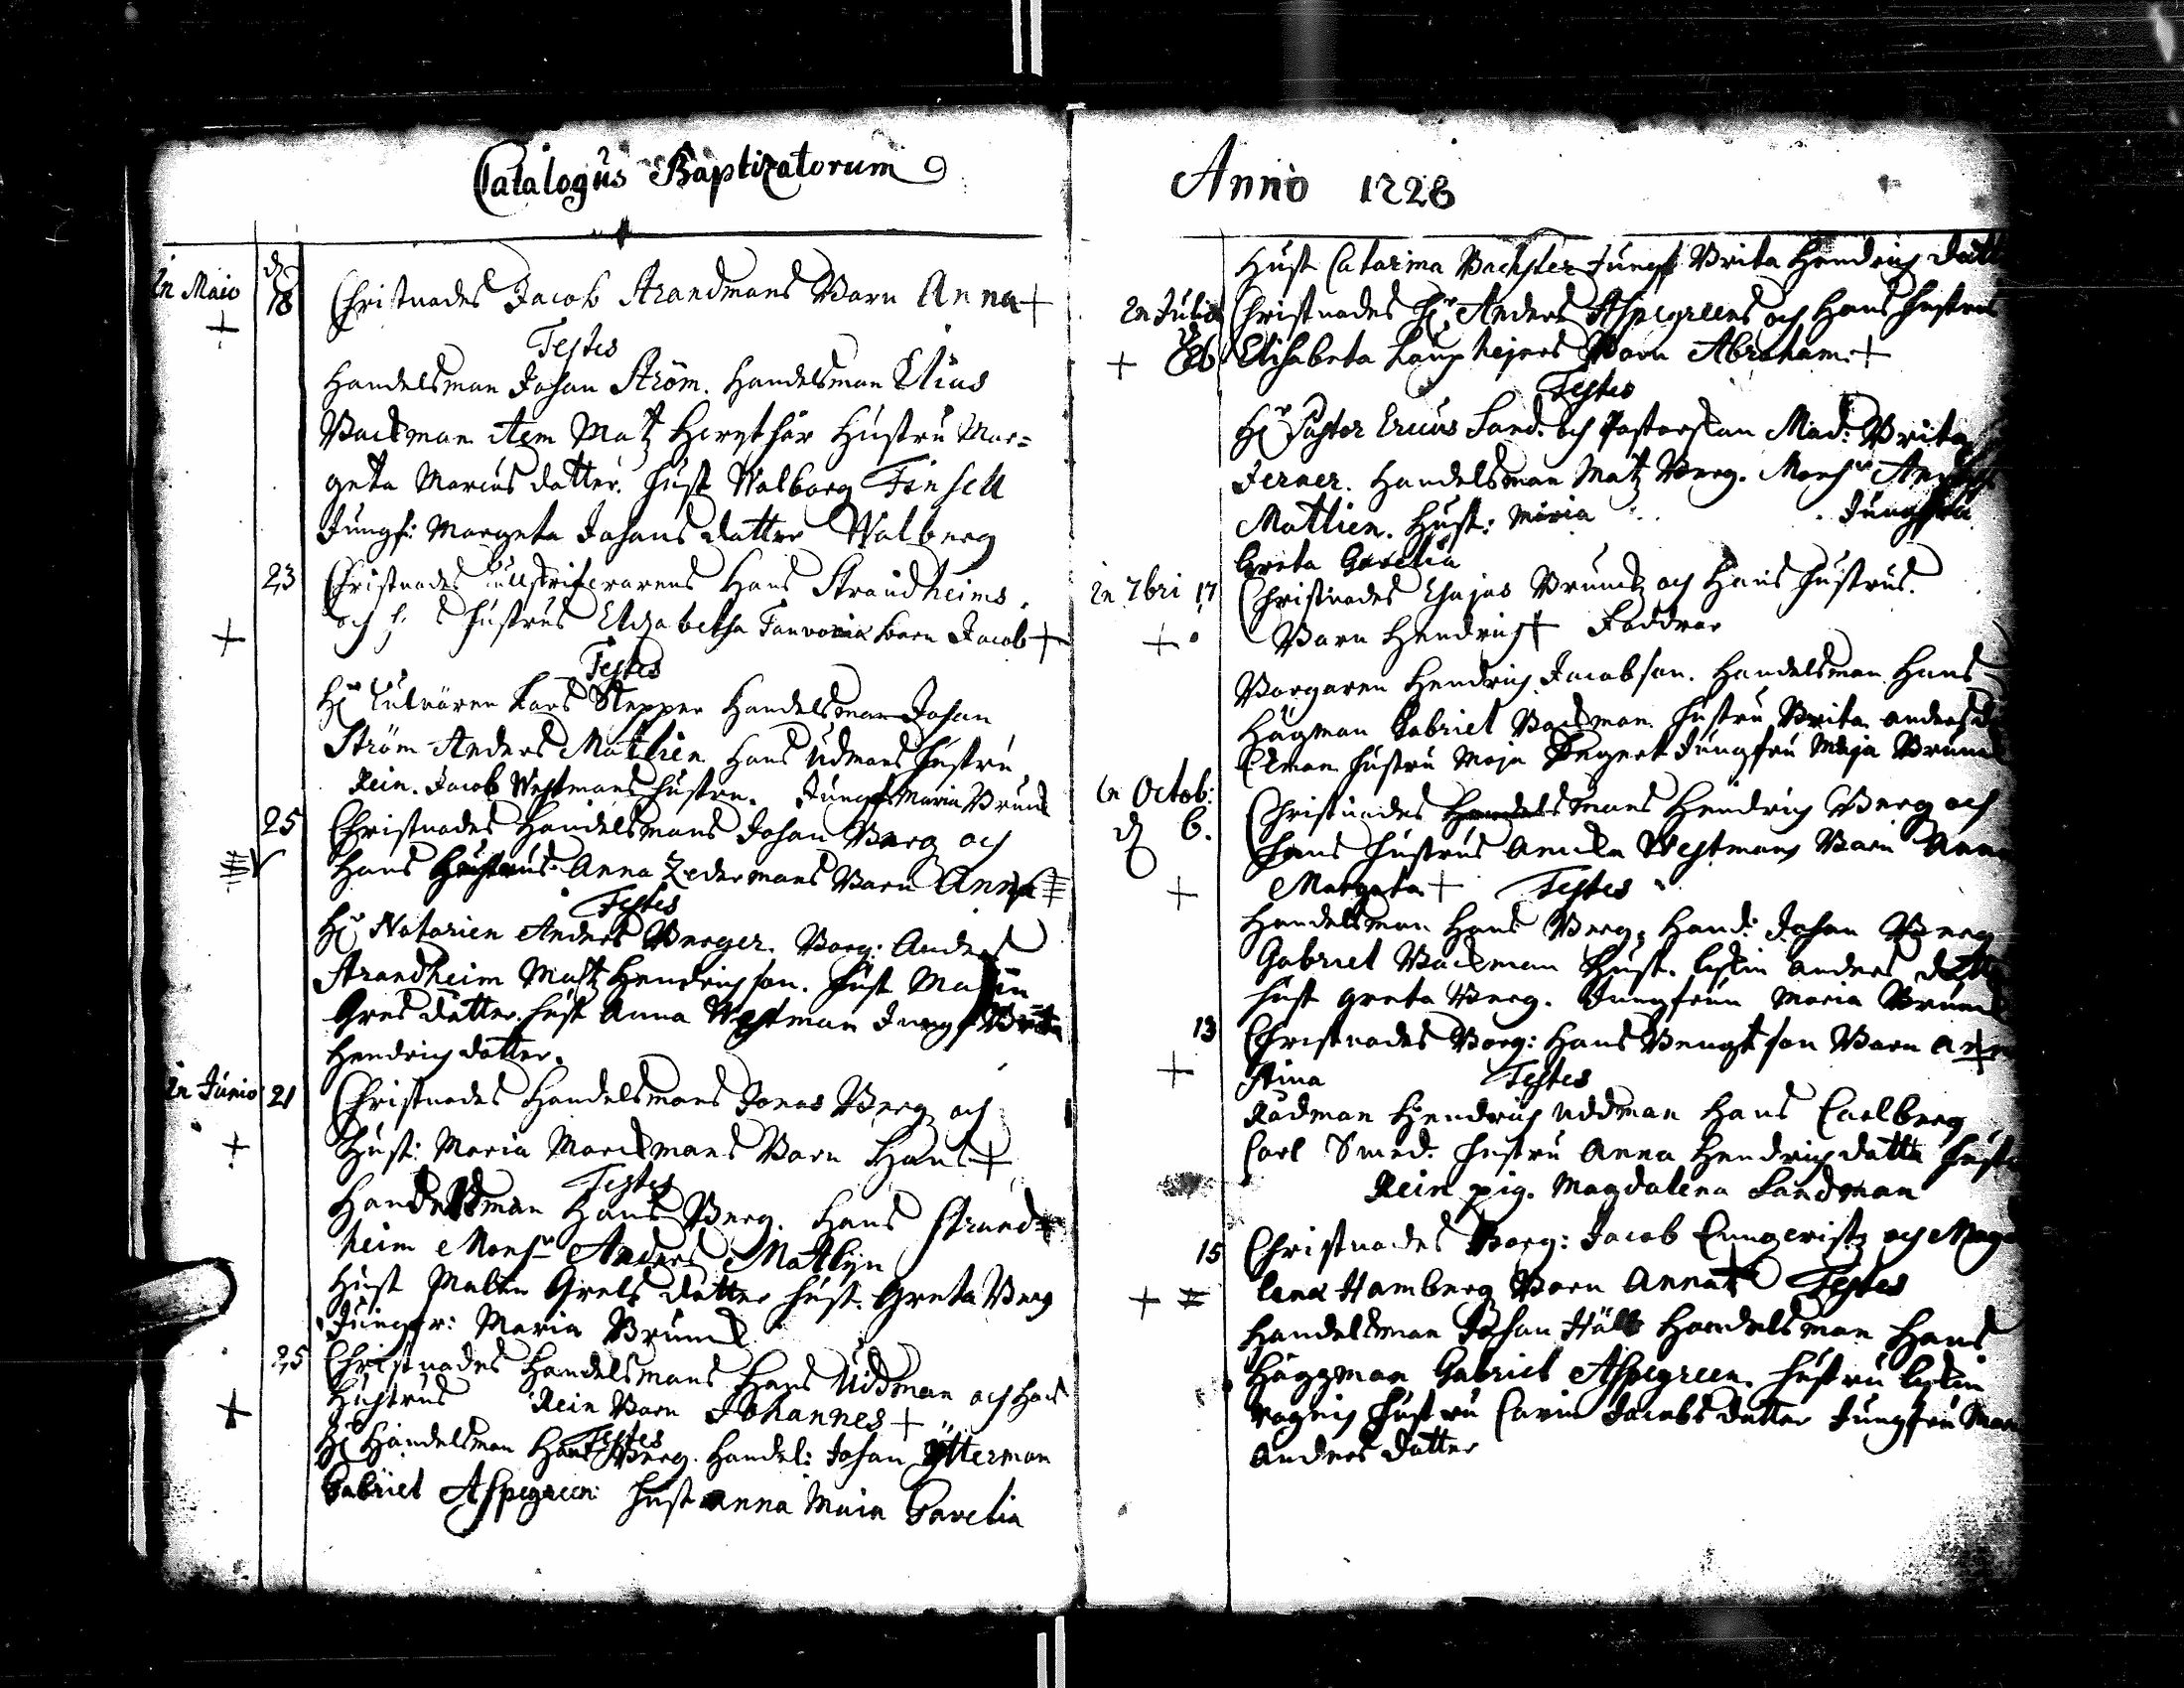 Catalogus Baptizatorum
In Maio d. 18 Christnades Jacob Strandmans Barn Anna +
Testes
Handelsman Johan Ström. Handelsman Elias
Backman Item Matz hustru Mar=
geta Marcus datter. hust Walborg
Jungf: Margeta Johans datter Walberg
23 Christnades Hans Strandheims
och hustrus Elizabetha Barn Jacob +
Testes
Hr Lars Stepper Handelsman Johan
Ström Anders Matlien Hans Udmans hustru
Rein. Jacob Westmans hustru. Jungf Maria Brunck
25 Christnades Handelsmans Johan Berg och
Hans Hustrus Anna Zedermans Barn Anna
Testes
Hr Notarien Anders Berger. Borg: Anders
Strandheim Matz Hendrichson. Hust Malin
Grels datter. hust Anna Westman Jungf Brita
Hendrich datter.
In Junio 21 Christnades Handelsmans Jonas Berg och
Hust: Maria Marckmans Barn Hans +
Testes
Handelsman Hans Berg. Hans Strand=
heim Monsr Anders Matlijn
Hust Malin Grels datter hust. Greta Berg
Jungfr: Maria Brunck
25 Christnades Handelsmans Hans Uddman och Hans
Hustrus Rein Barn Johannes +
Testes
Hr Handelsman Hans Berg. Handel: Johan Ytterman
Gabriel Aspegreen hust Anna Maia Gavelia
Anno 1728
Hust Catarina Bachster Jungf Brita Hendrich datt
In Julio Christnades Hr Anders Aspegreens och Hans hustrus
+ 26 Elisabeta Barn Abraham. +
Testes
Hr Pastor Ericus Sand. och Pastorskan Mad: Brita
Ferner. Handelsman Matz Berg. Monsr Anders
Matlien. Hust: Maria Jungfru
Greta Gavelia
In 7bri 17 Christnades Esajas Brunck och Hans hustrus
Barn Hendrich + Faddrar
Borgaren Hendrich Jacobson. Handelsman Hans
Hägman Gabriel Backman hustru Brita Anders d
Ekman hustru Maja Jungfru Maja Brunck
In Octob: d 6. Christnades Handelsmans Hendrich Berg och
Hans hustrus Annika Westmans Barn Anna
Margeta + Testes
Handelsman Hans Berg, Hand: Johan Berg
Gabriel Backman Hust. Anders datt
hust Greta Berg. Jungfrun Maria Brunck
13 Christnades Borg: Hans Bengtson Barn
Stina Testes
Rådman Hendrich Uddman Hans Carlberg
Carl Smed. hustru Anna Hendrich datte hust
Rein pig. Magdalena Sandman
15 Christnades Borg: Jacob och Magda
lena Hamberg Barn Anna + Testes
Handelsman Johan Häll Handelsman Hans
Häggman Gabriel Aspegreen. hustru
hustru Carin Jacobs datter Jungfru Mar
Anders datter